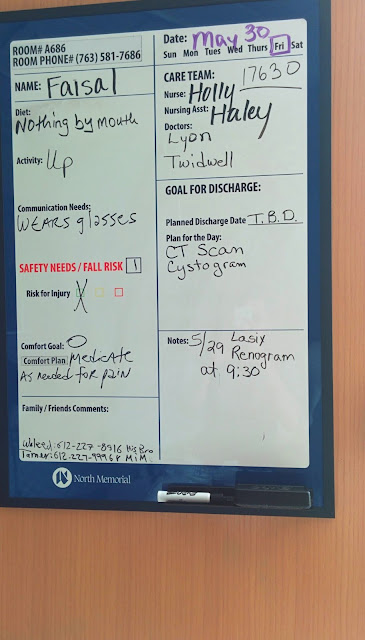 ROOM# A686
ROOM PHONE# (763) 581-7686
NAME: Faisal
Diet:
Nothing by mouth
Activity: Up
Communication Needs:
WEARS glasses
SAFETY NEEDS / FALL RISK 1
Risk for Injury
Comfort Goal: 0
Comfort Plan Medicate
As needed for pain
Family / Friends Comments:
Waleed: 612-227-8916 His Bro
612-227-9996
North Memorial
Date: May 30
Sun Mon Tues Wed Thurs Fri Sat
CARE TEAM: 17630
Nurse: Holly
Nursing Asst: Haley
Doctors:
Lyon
Twidwell
GOAL FOR DISCHARGE:
Planned Discharge Date T.B.D.
Plan for the Day:
CT Scan
Cystogram
Notes: 5/29 Lasix
Renogram
at 9:30